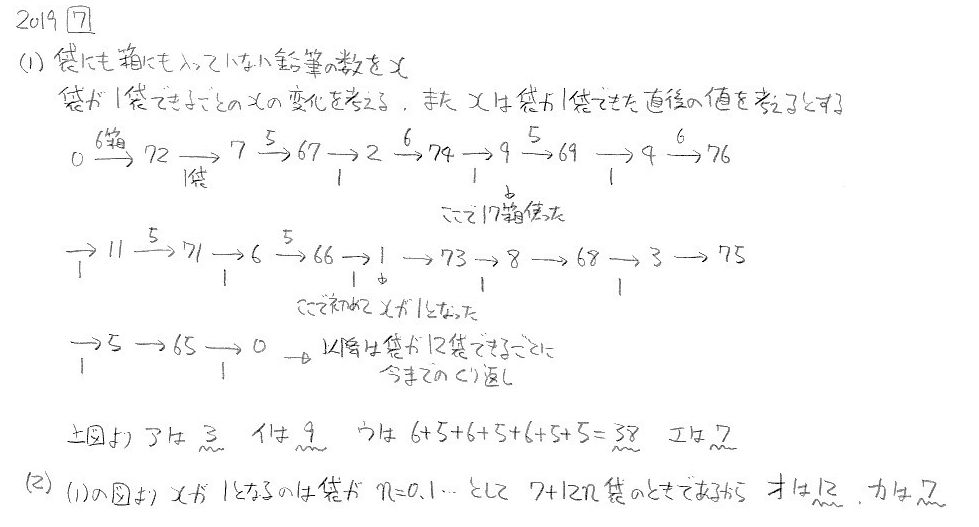 2019 7
(1) 袋にも箱にも入っていない鉛筆の数をx
袋が1袋できるごとのxの変化を考える、また xは袋が1袋できた直後の値を考えるとする
0 →(6箱) 72 →(1袋) 7 →(5) 67 →(1) 2 →(6) 74 →(1) 9 →(5) 69 →(1) 4 →(6) 76
ここで17箱使った
→(1) 11 →(5) 71 →(1) 6 →(5) 66 →(1) 1 → 73 →(1) 8 → 68 →(1) 3 → 75
ここで初めてxが1となった
→(1) 5 → 65 →(1) 0 → 以降は袋が12袋できるごとに
今までのくり返し
上図より アは 3 イは 9 ウは 6+5+6+5+6+5+5=38 エは 7
(2) (1)の図より xが 1となるのは袋が n=0,1… として 7+12n 袋のときであるから オは12、カは7